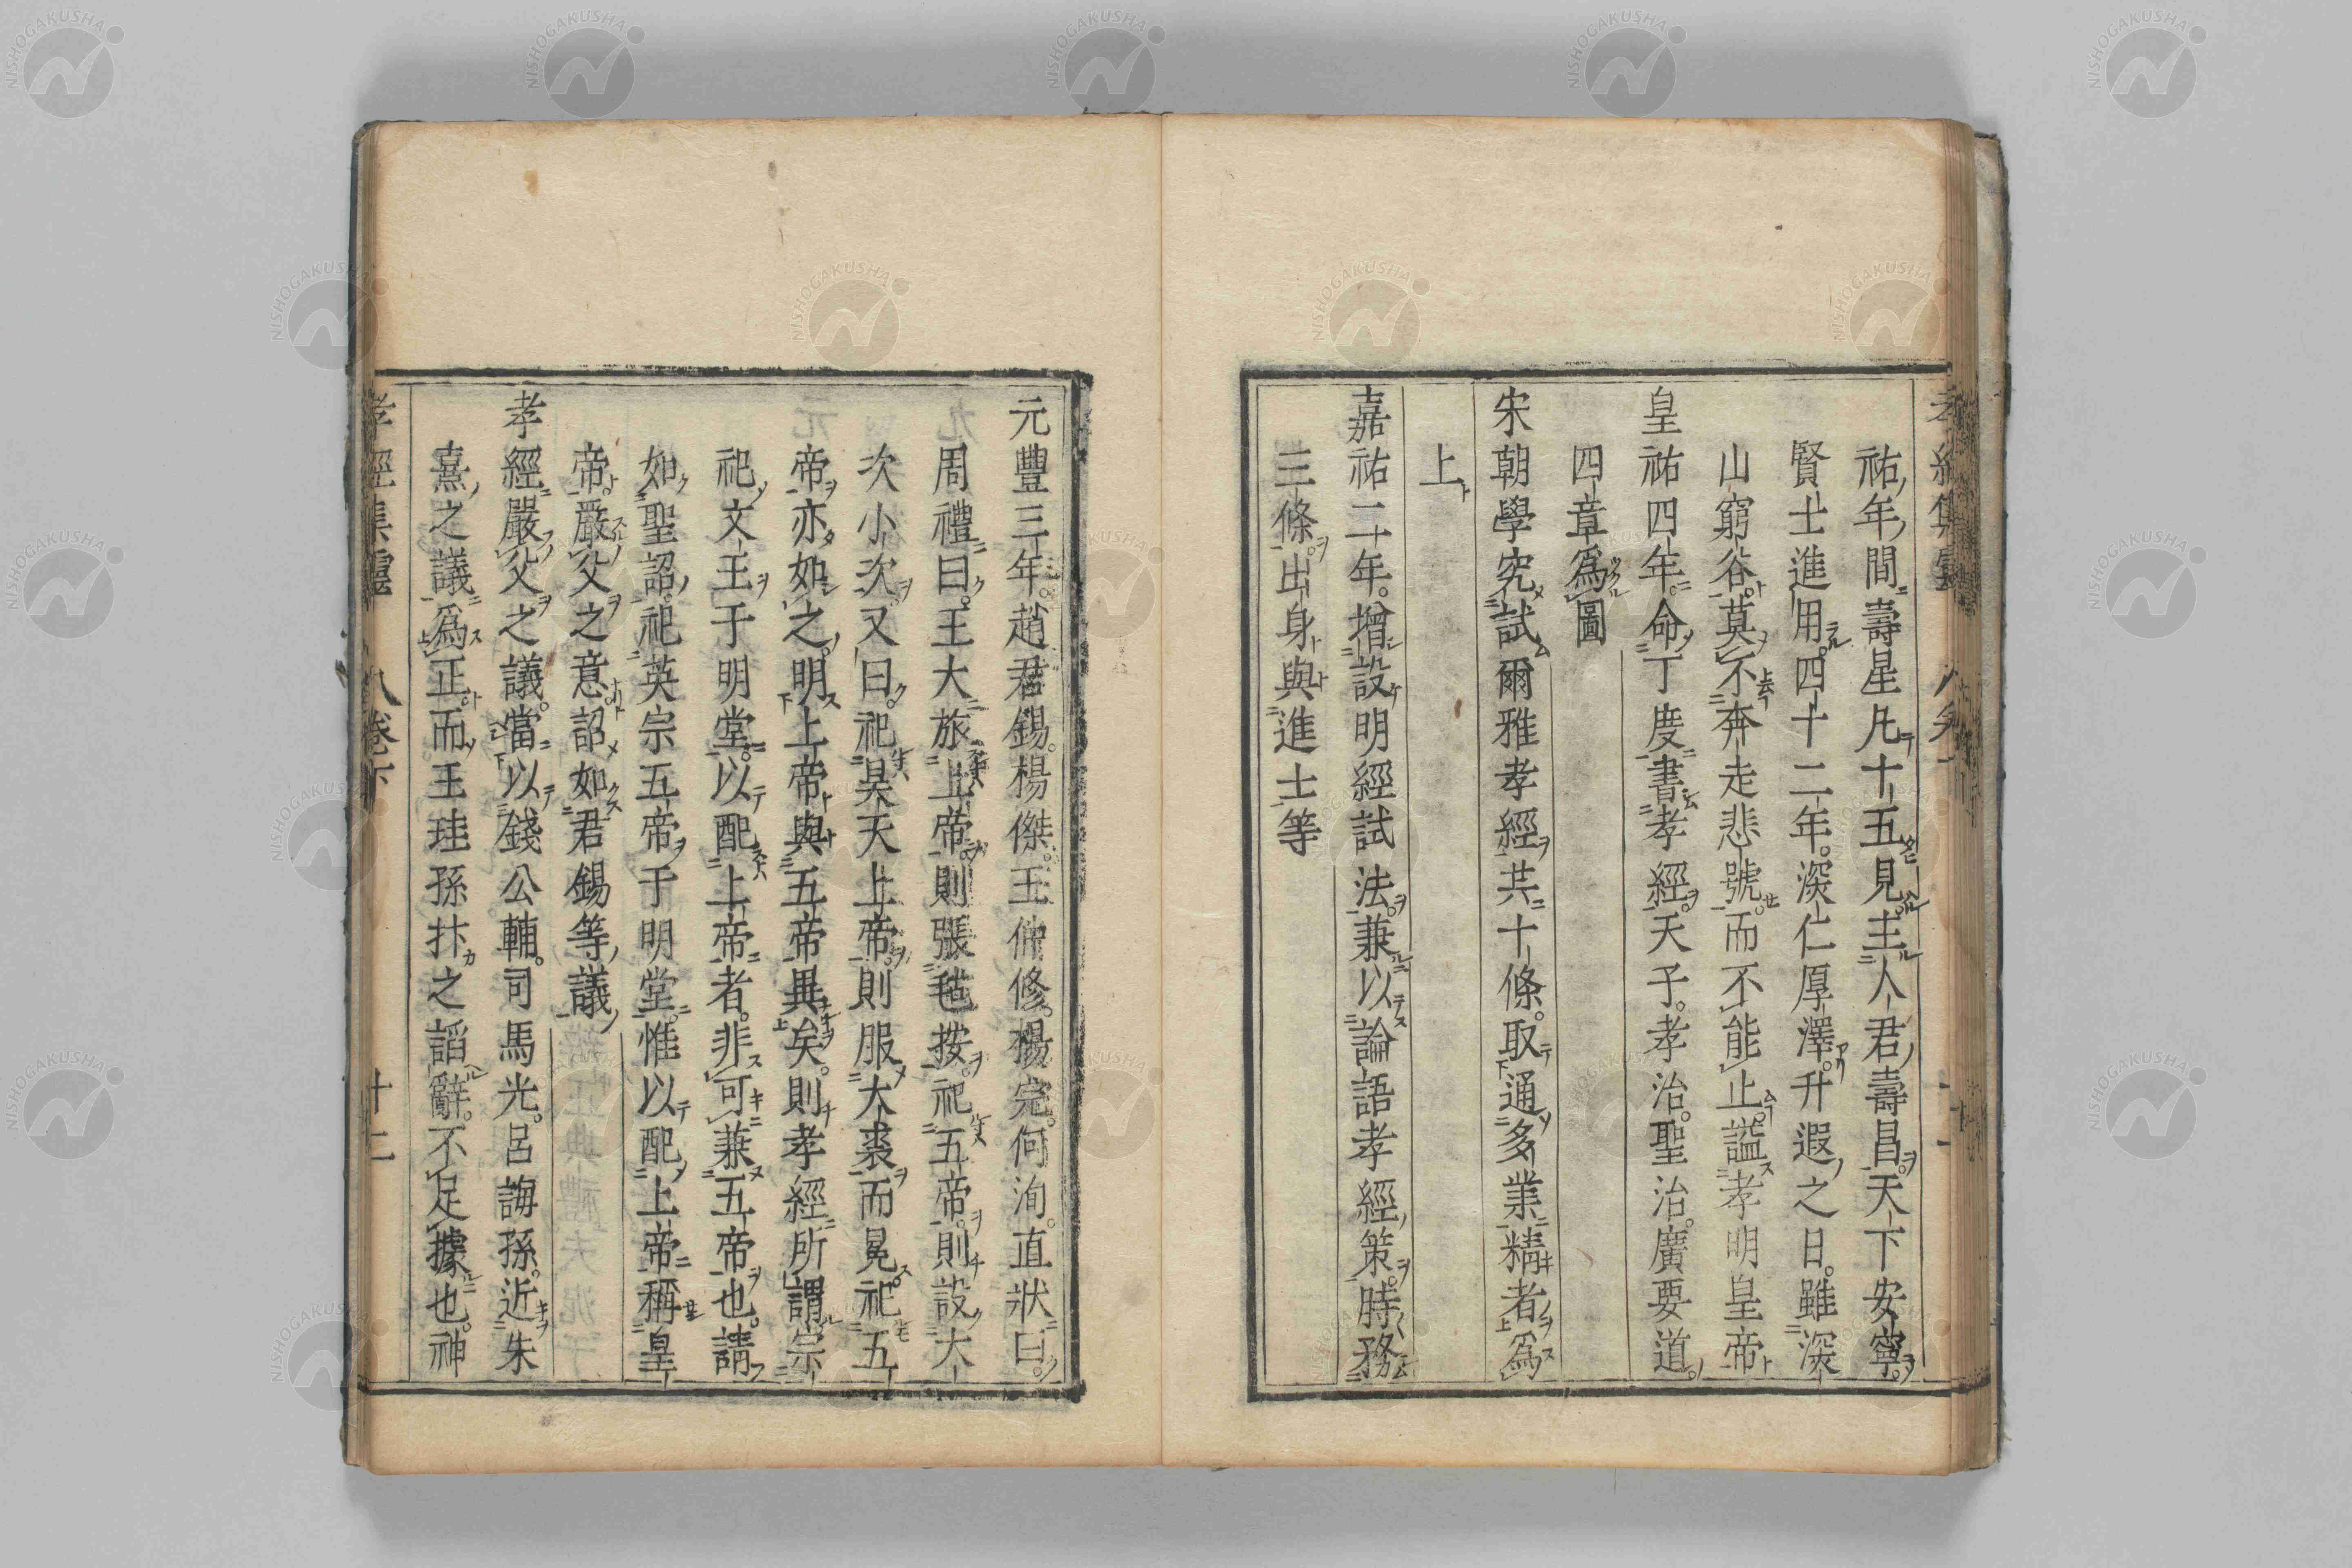 祐年間壽星凡十五見主人君壽昌天下安寧
賢士進用四十二年深仁厚澤升遐之日雖深
山窮谷莫不奔走悲號而不能止謚孝明皇帝
皇祐四年命丁度書孝經天子孝治聖治廣要道
四章爲圖
宋朝學究試爾雅孝經共十條取通多業精者爲
上
嘉祐二年增設明經試法兼以論語孝經策時務
三條出身與進士等
元豐三年趙君錫楊傑王仲修楊完何洵直狀曰
周禮曰王大旅上帝則張氊按祀五帝則設大
次小次又曰祀昊天上帝則服大裘而冕祀五
帝亦如之明上帝與五帝異矣則孝經所謂宗
祀文王于明堂以配上帝者非可兼五帝也請
如聖詔祀英宗五帝于明堂惟以配上帝稱皇
帝嚴父之意詔如君錫等議
孝經嚴父之議當以錢公輔司馬光呂誨孫近朱
熹之議爲正而王珪孫抃之諂辭不足據也神
孝經集靈 卷下 十二
NISHOGAKUSHA